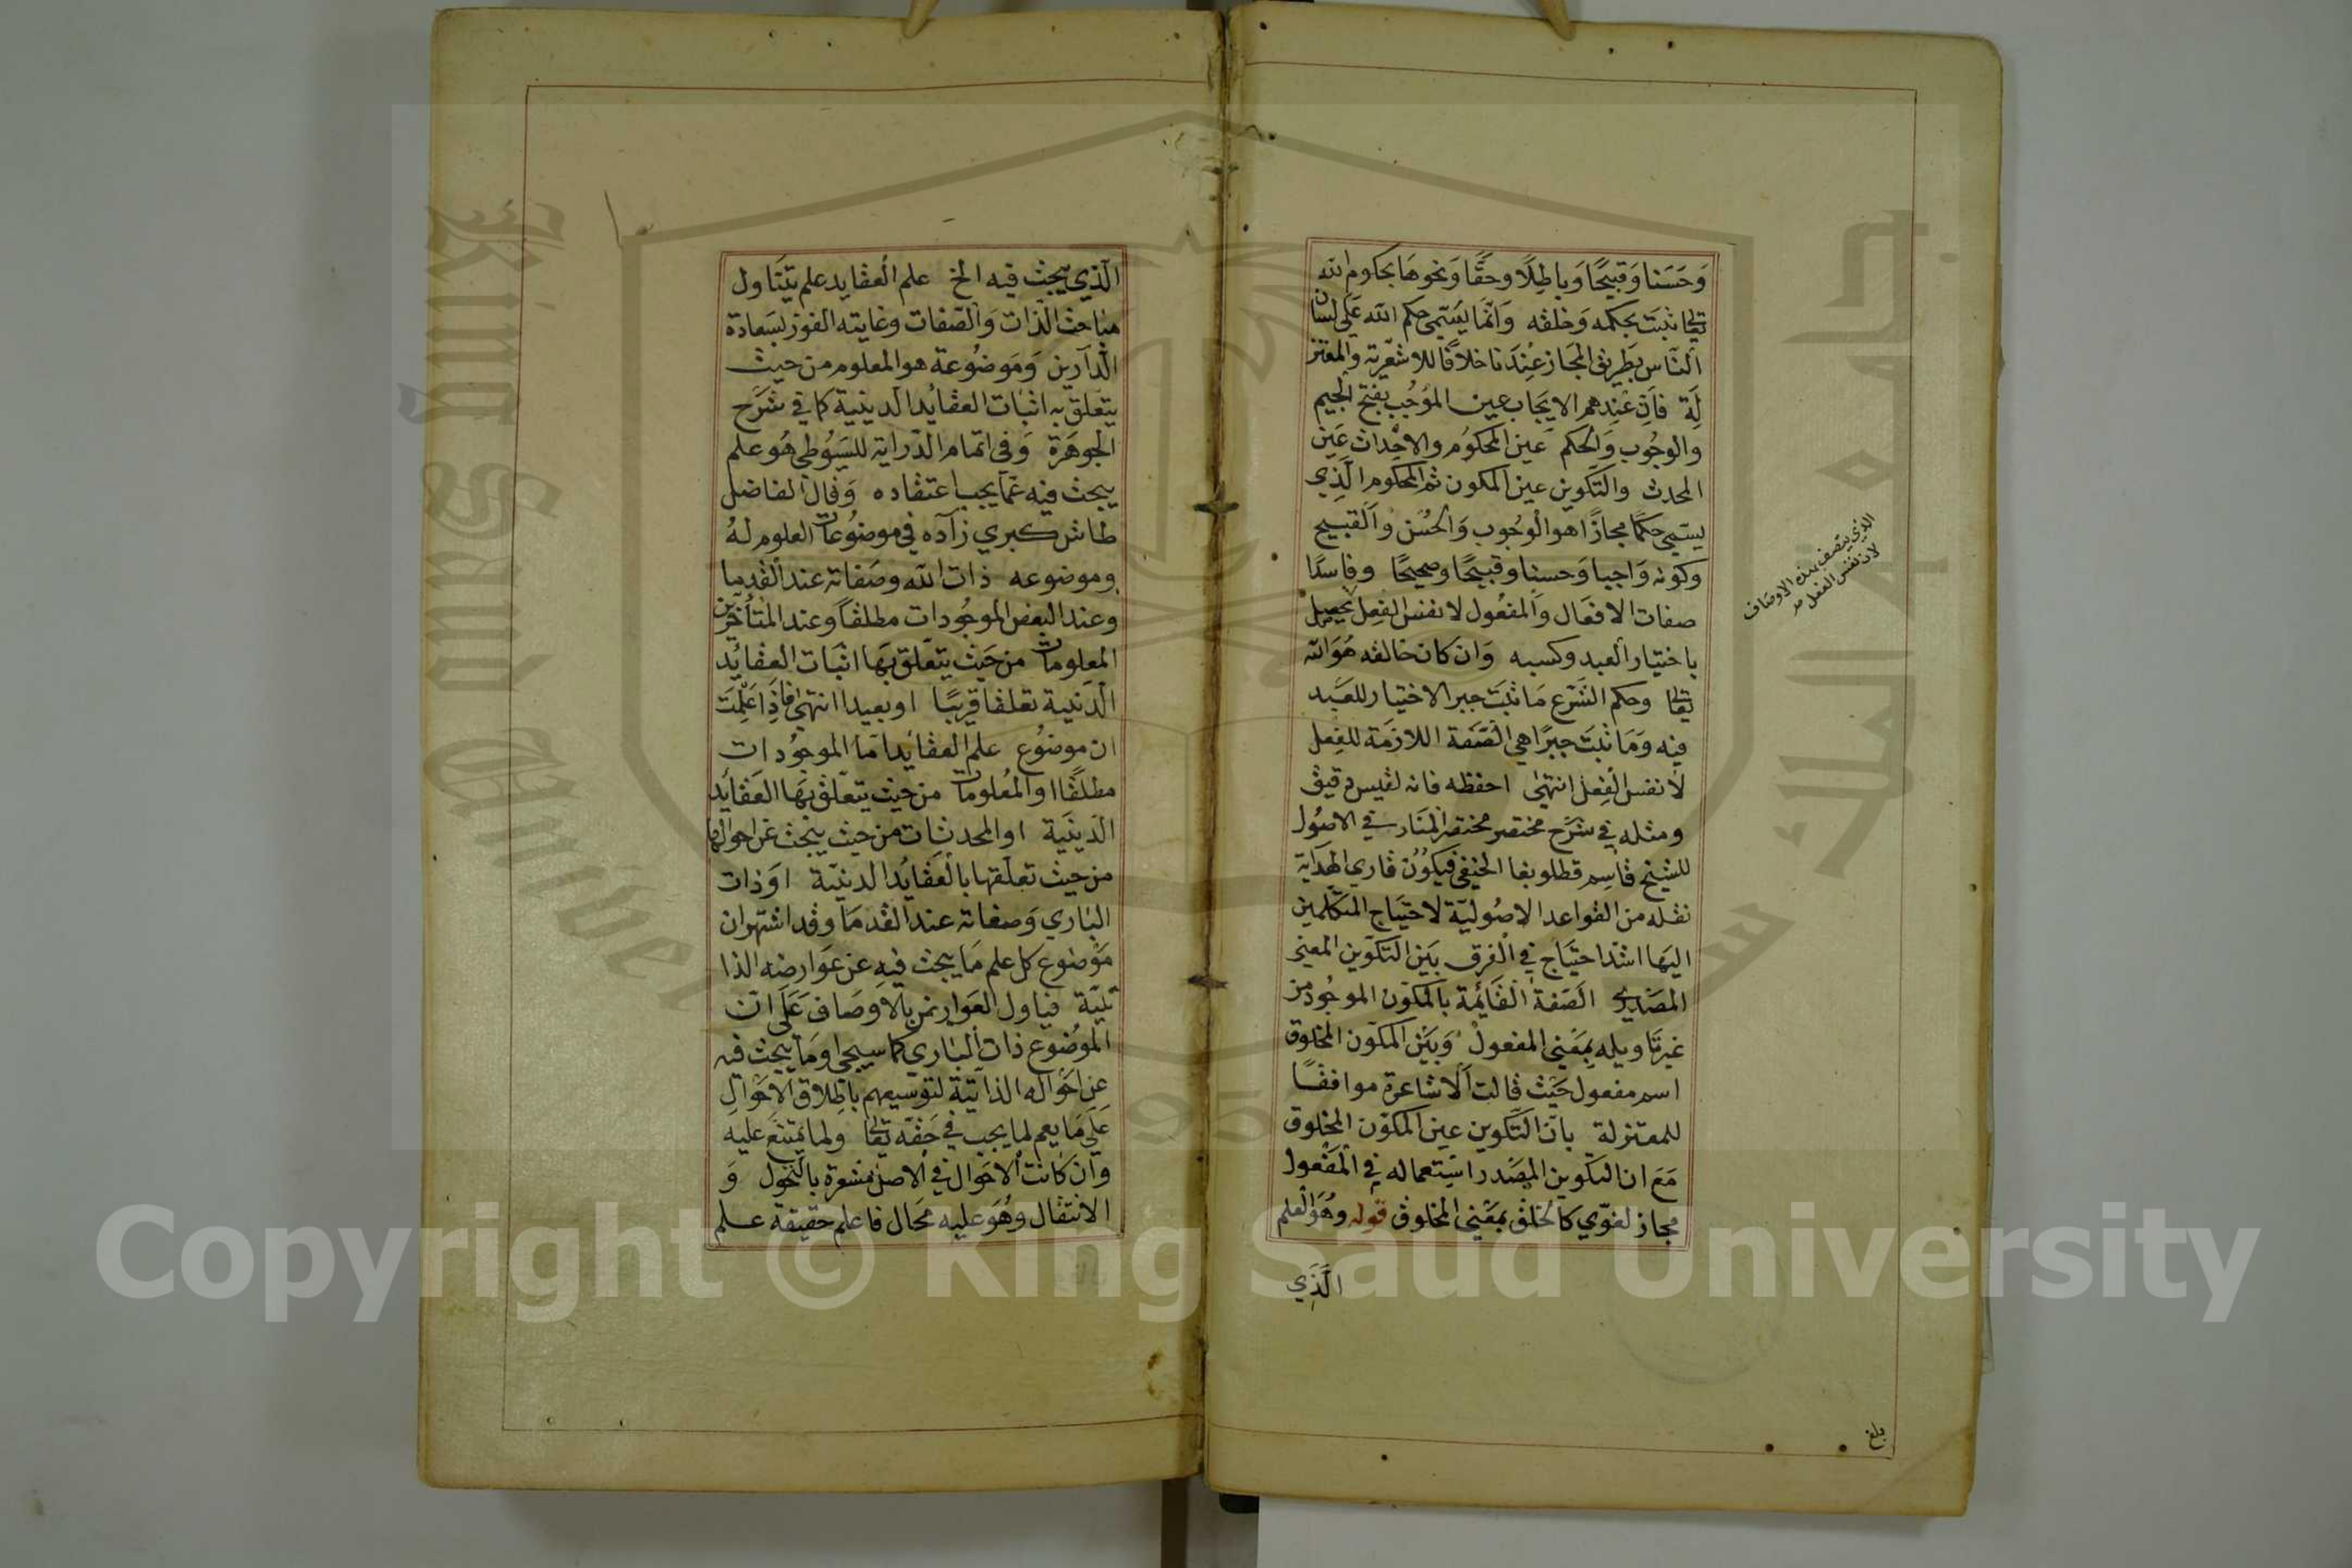 وَحَسَنا وَقَبيحًا وَباطِلًا وحَقًّا وَنحوهَا بحكوم الله
تعالى ثبتَ بحكمه وَخلقه وَانّمَا يُسَمّى حكم الله عَلى لسَان
النّاس بطَريق المجَاز عِنْدَنا خلافًا للاشعَرّية والمعتز
لَة فَاِنّ عندهم الايجَاب عين المؤجُب بفتح الجيم
والوجُوب وَالحكم عين المحكوُم والاحْداث عَين
المحدث والتكوين عين المكون ثم المحكوم الّذِي
يسمّى حكمًا مجازًا هو الوجُوب وَالحُسْن وَالقبيح
وكونه وَاجبا وَحسنا وقبيحًا وصحيحًا وفاسدًا
صفات الافعَال وَالمفعُول لا نفس الفِعل يحصل
باختيار العبد وكسبه وَان كان خالقه هُوَ الله
تعالى وحكم الشّرَع مَا ثبَتَ جبر الاختيار للعَبد
فيه وَمَا ثبَتَ جبرًا هي الصّفة اللازمَة للفِعل
لا نفس الفِعل انتهىٰ احفظه فانه لفيس دقيق
ومثله في شَرْح مختصر مختصر المنَار في الاصُول
للشيخ قاسِم قطلوبغا الحنفي فيكوُن قاري الهدَاية
نقله من القواعد الاصُوليّة لاحتيَاج المتكلمين
اليهَا اشدّ احتيَاج في الفرق بَين التكوّين المعنى
المصَدري الصّفة القَائمة بالمكوّن الموجُود من
غير تَاويله بمَعْنى المفعول وَبَيْن المكوّن المخلوق
اسم مفعول حَيث قالت الاشاعرة موافقًا
للمعتزلة بانّ التّكوين عين المكوّن المخلوق
مَعَ ان التكوين المصَدر استعماله في المفعول
مجاز لغوّي كالخلق بمَعْنى المخلوق قوله وهُوَ العلم
الّذي
الذي يتصف بهذه الاوصَاف
لان نفس الفعل
بلغ
الّذي يبحث فيه الخ علم العقايد علم يتنَاول
مبَاحث الذّات وَالصّفات وغايته الفوز بسَعادة
الدّارين وَمَوضُوعة هو المعلوم من حيث
يتعلق به اثبَات العقائد الدينية كما في شَرَح
الجوهَرَة وَفى اتمام الدّراية للسّيُوطي هُو علم
يبحث فيه عمّا يجب اعتقاده وَقال الفاضل
طاش كبري زآده في موضوُعات العلوم لهُ
وموضوعه ذات الله وصَفاته عند القدمَا
وعند البَعض الموجُودات مطلقاً وعند المتأخرين
المعلومات من حَيث يتعّلق بهَا اثبَات العقائد
الّدنيية تعلقا قريبًا او بعيدا انتهىٰ فاذَا عَلِمْتَ
ان موضوُع علم العقائد امّا الموجُودات
مطلقًا او المعُلومات من حيث يتعّلق بهَا العقَائد
الدّينيّة او المحدثات من حيث يبحث عن احوالها
من حيث تعلقها بالعَقائد الدينيّة اوَ ذات
البَاري وَصفاته عند القدمَا وقد اشتهر ان
مَوْضوع كل علم مَا يبحث فيهِ عن عَوارضه الذا
تيّة فياول العَوارض بالاوصَاف عَلَى انّ
الموضُوع ذات البَاري كما سيجى او مَا يبحث فيه
عن احْواله الذاتية لتوسيعهم باطلاق الاحْوال
عَلَى مَا يعم لما يجب في حَقّه تعالى ولما يمتنعَ عليه
وان كانت الاحْوال في الاصل مشعرة بالتحّول وَ
الانتقال وهُوَ عليه مَحَال فاعلم حقيقة علم
Copyright © King Saud University
King Saud University
1957